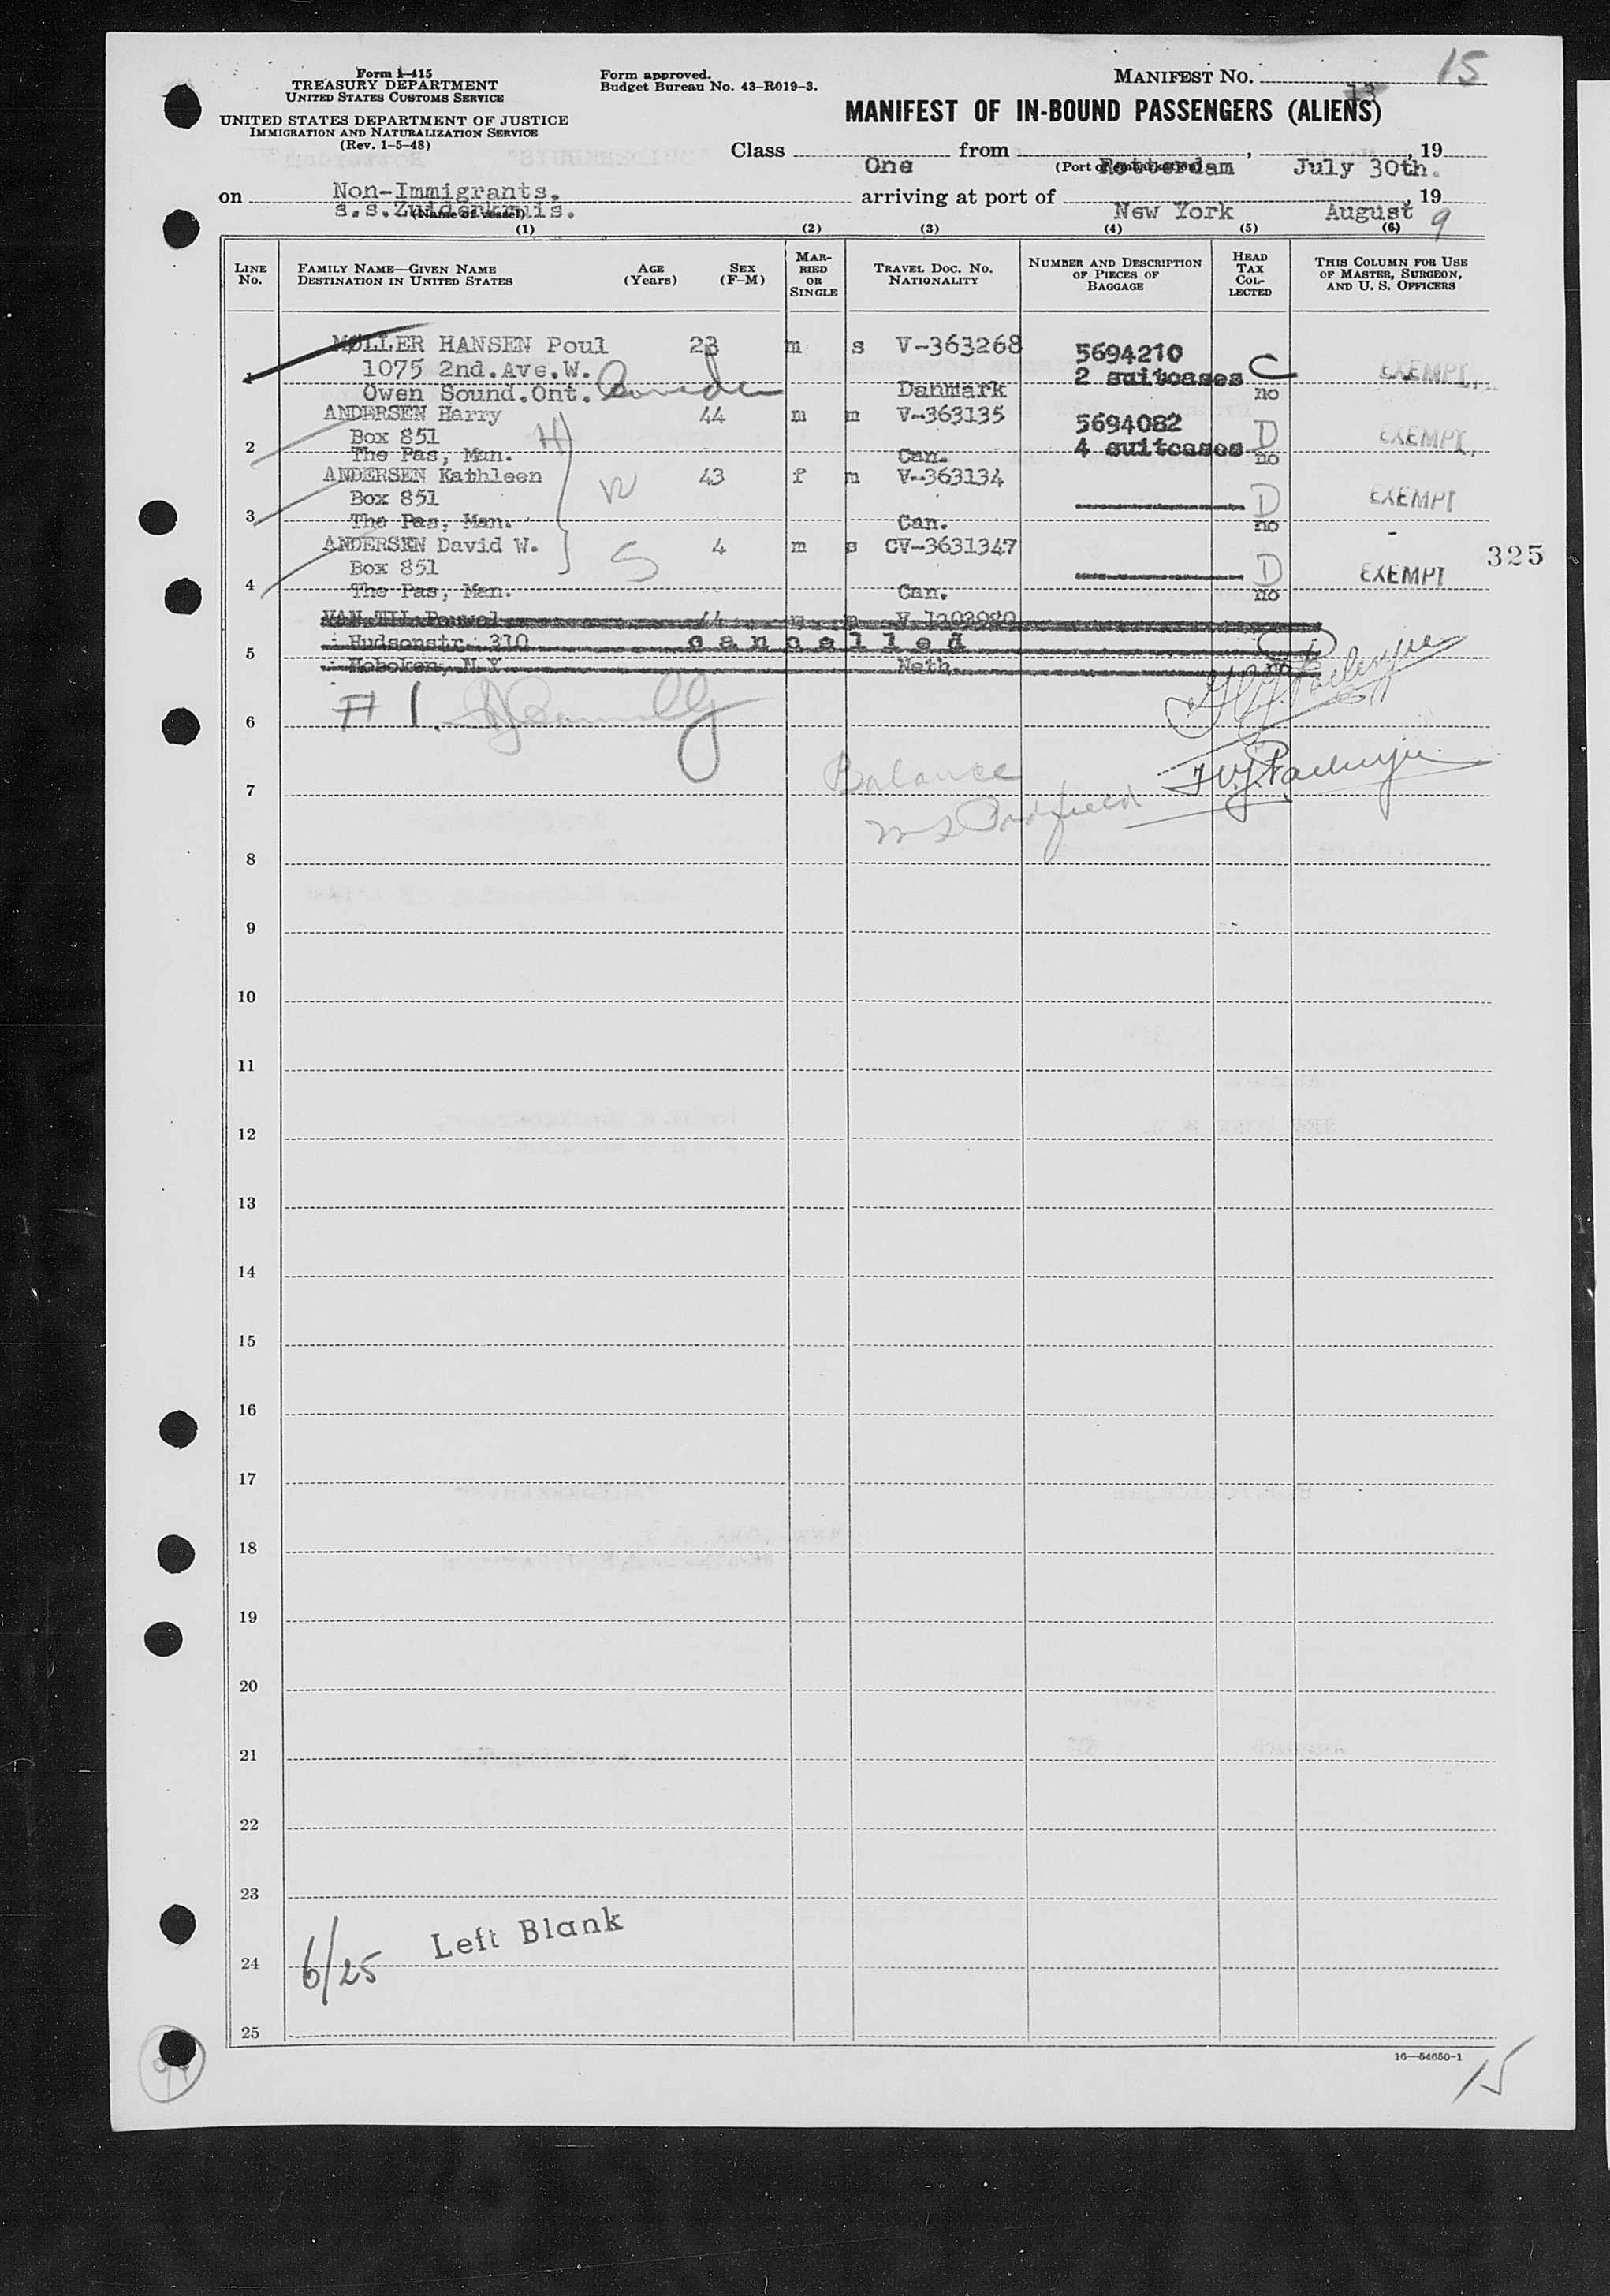 Form I-415
TREASURY DEPARTMENT
UNITED STATES CUSTOMS SERVICE
UNITED STATES DEPARTMENT OF JUSTICE
IMMIGRATION AND NATURALIZATION SERVICE
(Rev. 1-5-48)
Form approved.
Budget Bureau No. 43-R019-3.
MANIFEST NO. 15
13
MANIFEST OF IN-BOUND PASSENGERS (ALIENS)
Class One from Rotterdam, July 30th., 19
(Port of embarkation)
on Non-Immigrants. arriving at port of New York August 9, 19
s.s.Zuiderkruis.
(Name of vessel)
(1) (2) (3) (4) (5) (6)
LINE No. FAMILY NAME—GIVEN NAME DESTINATION IN UNITED STATES AGE (Years) SEX (F-M) MARRIED OR SINGLE TRAVEL DOC. NO. NATIONALITY NUMBER AND DESCRIPTION OF PIECES OF BAGGAGE HEAD TAX COLLECTED THIS COLUMN FOR USE OF MASTER, SURGEON, AND U. S. OFFICERS
1 MØLLER HANSEN Poul 23 m s V-363268 5694210 C EXEMPT
1075 2nd.Ave.W. 2 suitcases
Owen Sound.Ont. Danmark no
2 ANDERSEN Harry H 44 m m V-363135 5694082 D EXEMPT
Box 851 4 suitcases
The Pas, Man. Can. no
3 ANDERSEN Kathleen W 43 f m V-363134 D EXEMPT
Box 851
The Pas, Man. Can. no
4 ANDERSEN David W. S 4 m s CV-3631347 D EXEMPT
Box 851
The Pas, Man. Can. no
325
5 VAN TIL Pouwel 44 m m
Hudsonstr. 310 cancelled
Hoboken, N.Y. Neth. no
6 # 1.
7 Balance
8
9
10
11
12
13
14
15
16
17
18
19
20
21
22
23
24 6/25 Left Blank
25
16—54650-1
15